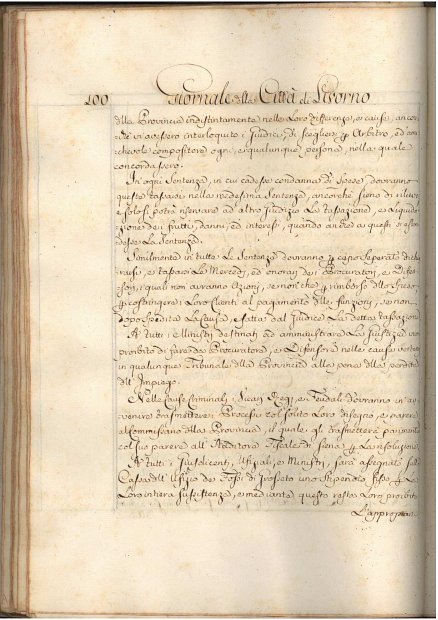 100 Giornale della Città di Livorno
della Provincia indistintamente nelle Loro diferenze, e cause, ancor
che vi avessero interloquito i Giudici, di scegliere p Arbitro, ed am
ichevole compositore ogni, e qualunque persona, nella quale
concordassero.
In ogni Sentenza, in cui cadesse condanna di spese, dovranno
queste tassarsi nella medesima Sentenza, ancorchè sieno di
e solo si potrà riservare ad altro Giudizio La tassazione, e Liquida
zione dei frutti, danni, ed interessi, quando anche a questi si
desse La Sentenza.
Similmente in tutte Le Sentenze dovranno p capo separato dichia
rarsi, e tassarsi Le Mercedi, ed onorarj dei Procuratori, e Difen
sori, i quali non avranno Azioni, se non che p rimborso delle Spese
p costringere i Loro Clienti al pagamento delle funzioni, se non
dopo spedita La Causa, e fatta dal Giudice La detta tassazione
A tutti i Ministri destinati ad amministrare La Giustizia vien
proibito di fare da Procuratore, e Difensore nelle cause vertenti
in qualunque Tribunale della Provincia alla pena della perdita
dell Impiego.
Nelle Cause Criminali i Vicarj Regj, e i Feudali dovranno in av
venire trasmettere i Processi col solito Loro disegno, e parere
al Commissario della Provincia, il quale gli trasmetterà parimente
col suo parere all' Auditore Fiscale di Siena p La risoluzione
A tutti i Giusdicenti, Ufiziali, e Ministri, sarà assegnato sulla
Cassa dell' Ufizio dei Fossi di Grosseto uno Stipendio fisso p La
Loro intera sussistenza, e mediante questo resta Loro proibito
L'appropriar